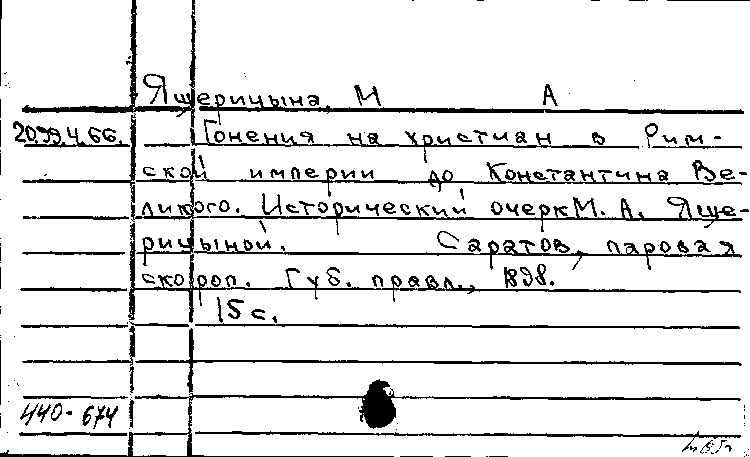 Ящерицына, М А
20.99.4.66. Гонения на христиан в Рим-
ской империи до Константина Ве-
ликого. Исторический очерк М. А. Яще-
рицыной. Саратов, паровая
скороп. Губ. правл., 1898.
15 с.
440-674